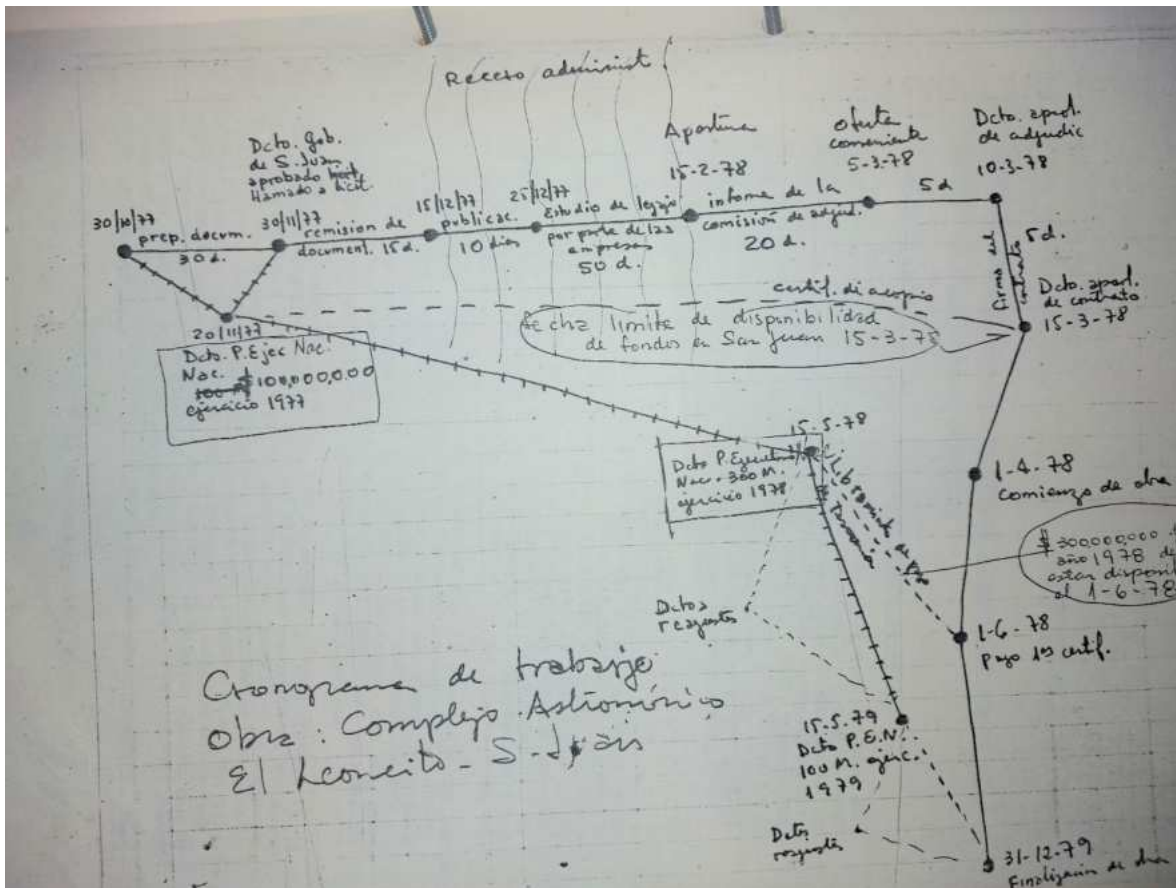 Receso administ.
Dcto. Gob.
de S. Juan
aprobado
llamado a licit.
30/10/77
prep. docum.
30 d.
30/11/77
remision de
document. 15 d.
15/12/77
publicac.
10 dias
25/12/77
Estudio de legajo
por parte de las
empresas
50 d.
Apertura
15-2-78
informe de la
comisión de adjud.
20 d.
oferta
conveniente
5-3-78
5 d
Dcto. aprob.
de adjudic
10-3-78
firma del
contrato
5 d.
Dcto. aprob.
de contrato
15-3-78
certif. de acopio
fecha limite de disponibilidad
de fondos en San Juan 15-3-78
20/11/77
Dcto. P. Ejec Nac.
Nac. $100,000,000
ejercicio 1977
15-5-78
Dcto P. Ejecutivo
Nac. 300 M.
ejercicio 1978
Libramiento de
Tesoreria
1-4-78
Comienzo de obra
$300,000,000
año 1978
estar
el 1-6-78
1-6-78
Pago 1er certif.
Dctos
reajustes
15.5.79
Dcto P.E.N.
100 M. ejerc.
1979
Dctos
reajustes
31-12-79
Finalizacion de obra
Cronograma de trabajo
Obra: Complejo Astronómico
El Leoncito - S. Juan